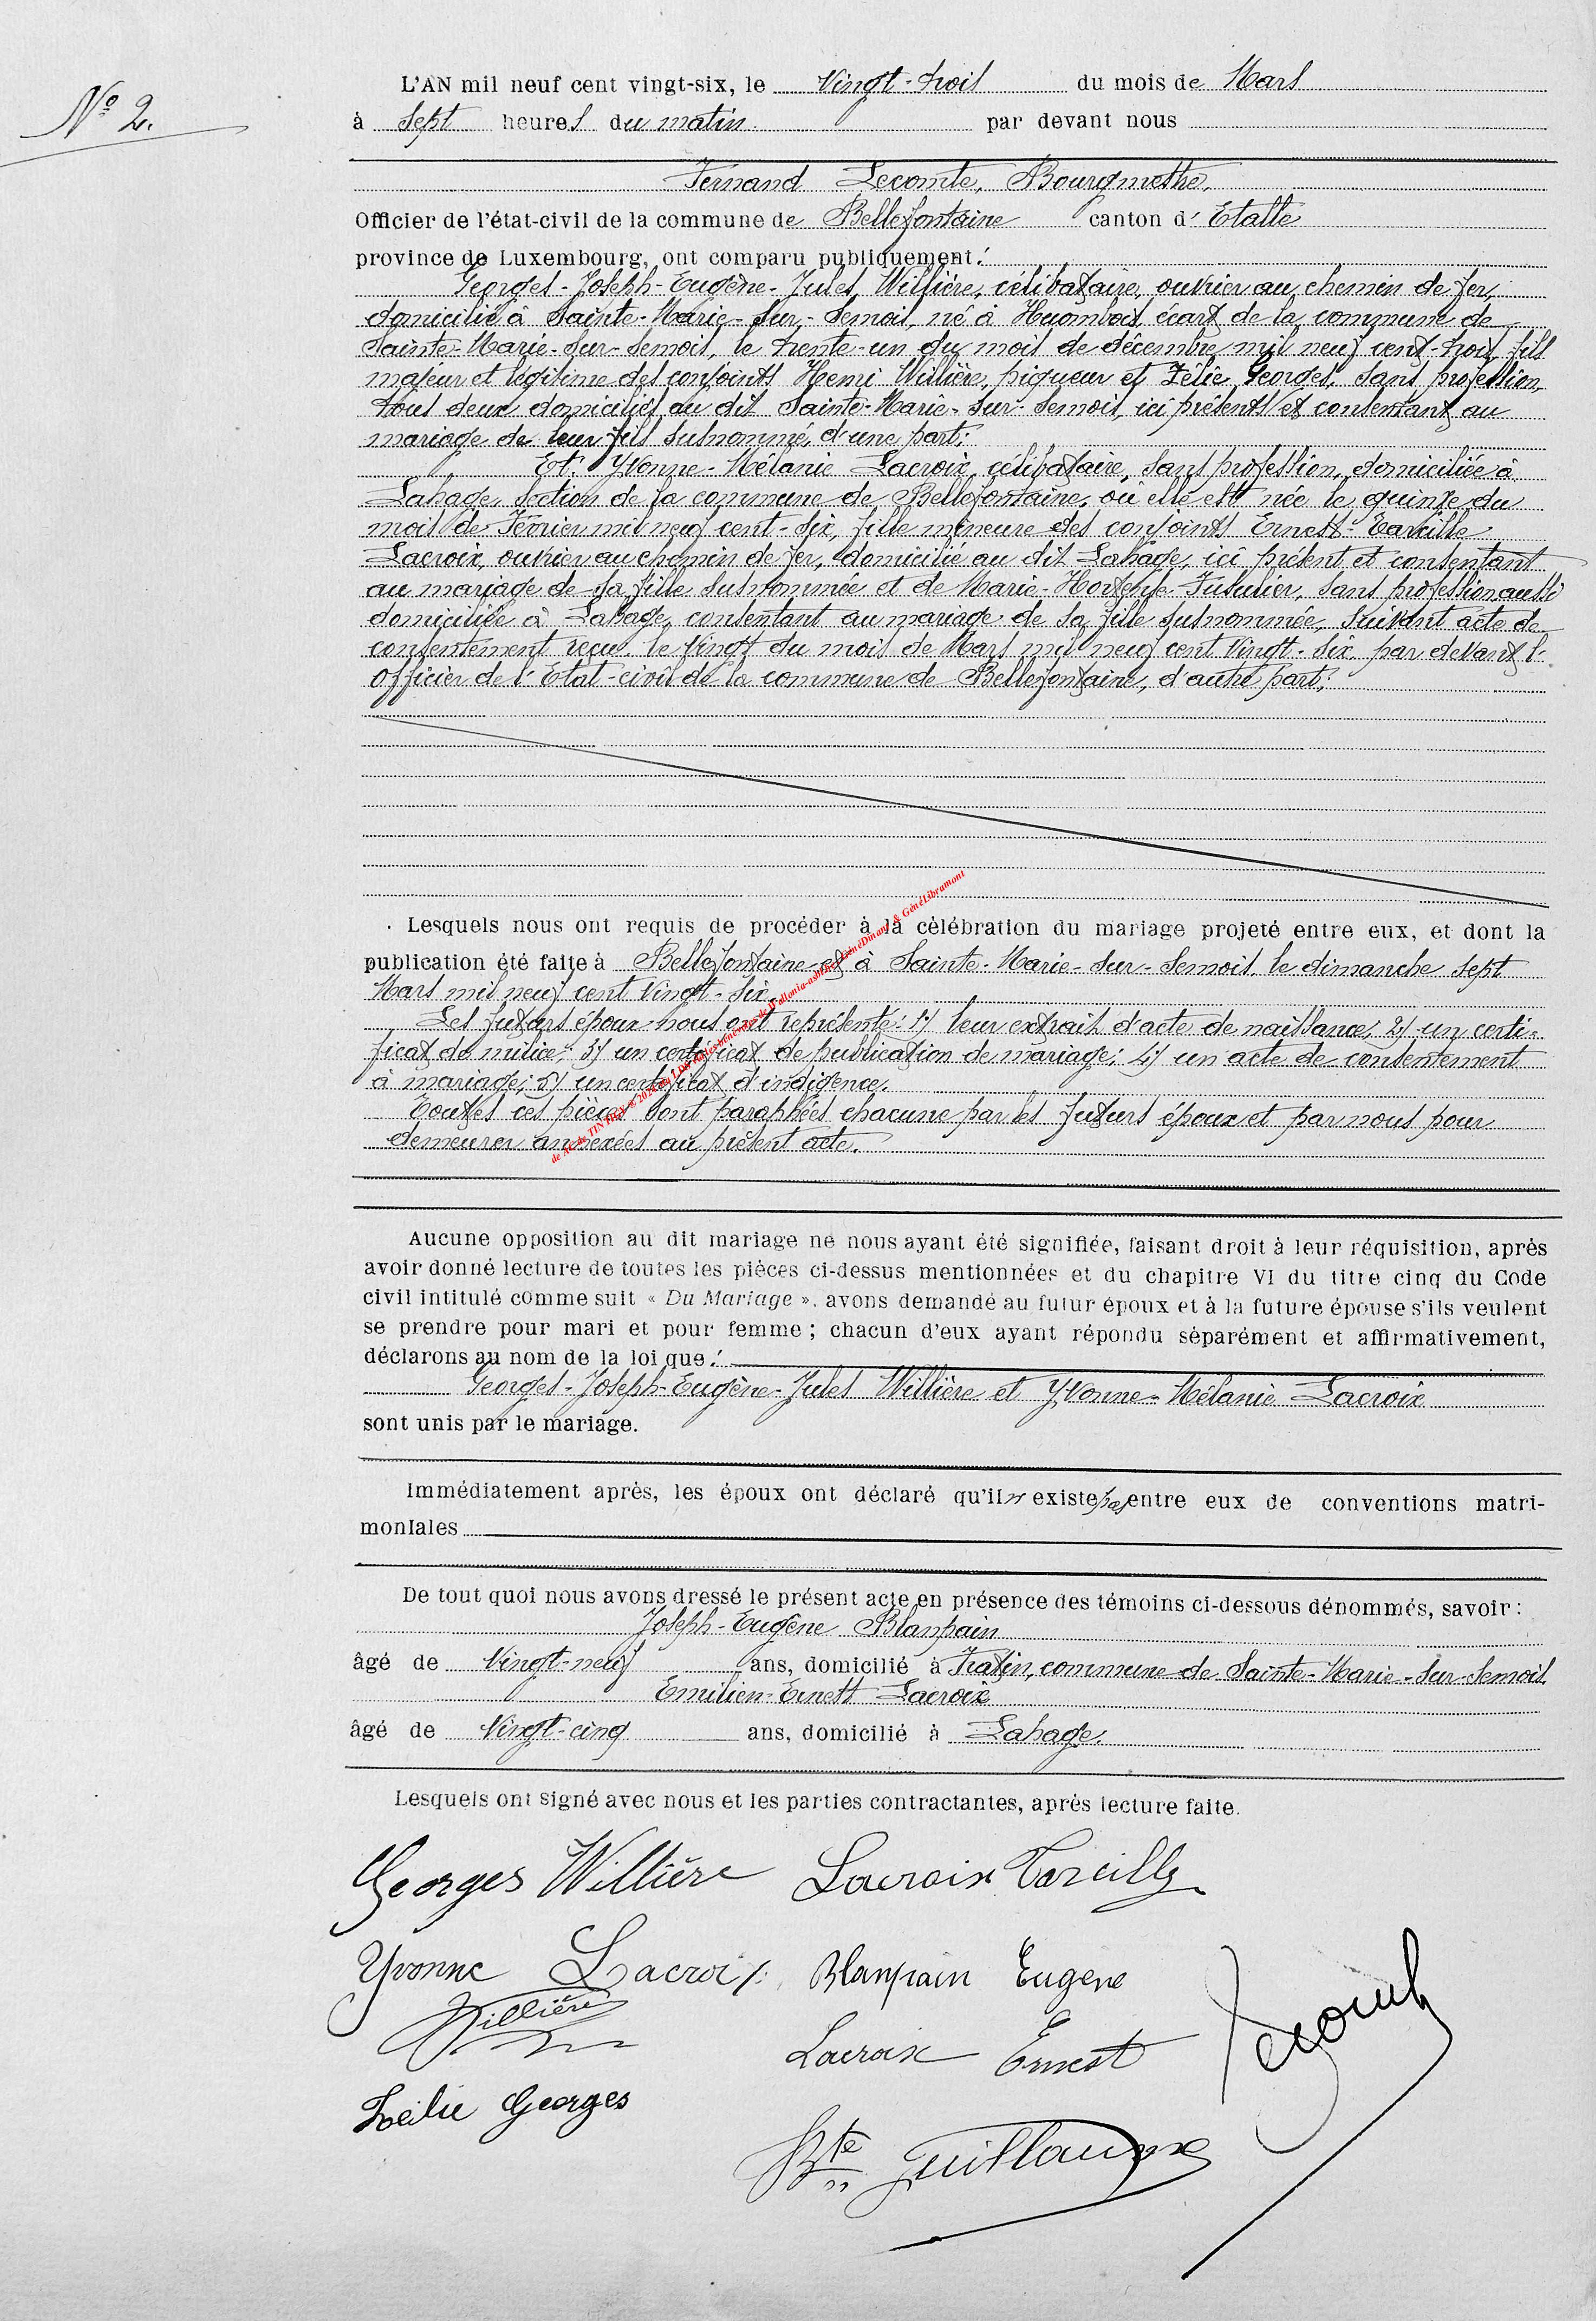 N° 2.
L'AN mil neuf cent vingt-six, le Vingt-trois du mois de Mars
à sept heures du matin. par devant nous
Fernand Lecomte, Bourgmestre,
Officier de l'état-civil de la commune de Bellefontaine canton d' Etalle
province de Luxembourg, ont comparu publiquement:
Georges-Joseph-Eugène-Jules Willière, célibataire, ouvrier au chemin de fer,
domicilié à Sainte-Marie-sur-Semois, né à Huombois, écart de la commune de
Sainte-Marie-sur-Semois, le trente-un du mois de décembre mil neuf cent-trois, fils
majeur et légitime des conjoints Henri Willière, piqueur et Zélie Georges, sans profession,
tous deux domiciliés au dit Sainte-Marie-sur-Semois, ici présents et consentant au
mariage de leur fils susnommé, d'une part;
Et: Yvonne-Mélanie Lacroix, célibataire, sans profession, domiciliée à
Lahage, section de la commune de Bellefontaine, où elle est née le quinze du
mois de Février mil neuf cent-six, fille mineure des conjoints Ernest-Tarcille
Lacroix, ouvrier au chemin de fer, domicilié au dit Lahage, ici présent et consentant
au mariage de sa fille susnommée et de Marie-Hortense sans profession, aussi
domiciliée à Lahage, consentant au mariage de sa fille susnommée, suivant acte de
consentement reçu le Vingt du mois de Mars mil neuf cent Vingt-six, par devant l'
officier de l'Etat-civil de la commune de Bellefontaine, d'autre part;
Lesquels nous ont requis de procéder à la célébration du mariage projeté entre eux, et dont la
publication été faite à Bellefontaine et à Sainte-Marie-sur-Semois, le dimanche sept
Mars mil neuf cent Vingt-six.
Les futurs époux nous ont représenté: 1) leur extrait d'acte de naissance; 2) un certi-
ficat de milice; 3) un certificat de publication de mariage; 4) un acte de consentement
à mariage; 5) un certificat d'indigence.
Toutes ces pièces sont paraphées chacune par les futurs époux et par nous pour
demeurer annexées au présent acte.
Aucune opposition au dit mariage ne nous ayant été signifiée, faisant droit à leur réquisition, après
avoir donné lecture de toutes les pièces ci-dessus mentionnées et du chapitre VI du titre cinq du Code
civil intitulé comme suit « Du Mariage ». avons demandé au futur époux et à la future épouse s'ils veulent
se prendre pour mari et pour femme ; chacun d'eux ayant répondu séparément et affirmativement,
déclarons au nom de la loi que:
Georges-Joseph-Eugène-Jules Willière et Yvonne-Mélanie Lacroix
sont unis par le mariage.
Immédiatement après, les époux ont déclaré qu'il n' existe pas entre eux de conventions matri-
moniales
De tout quoi nous avons dressé le présent acte en présence des témoins ci-dessous dénommés, savoir :
Joseph-Eugène Blanpain
âgé de Vingt-neuf ans, domicilié à Fratin, commune de Sainte-Marie-sur-Semois.
Emilien-Ernest Lacroix
âgé de Vingt-cinq ans, domicilié à Lahage.
Lesquels ont signé avec nous et les parties contractantes, après lecture faite.
Georges Willière Lacroix Tarcille
Yvonne Lacroix Blanpain Eugène
Willière Lacroix Ernest
Zélie Georges
Bte Guillaume